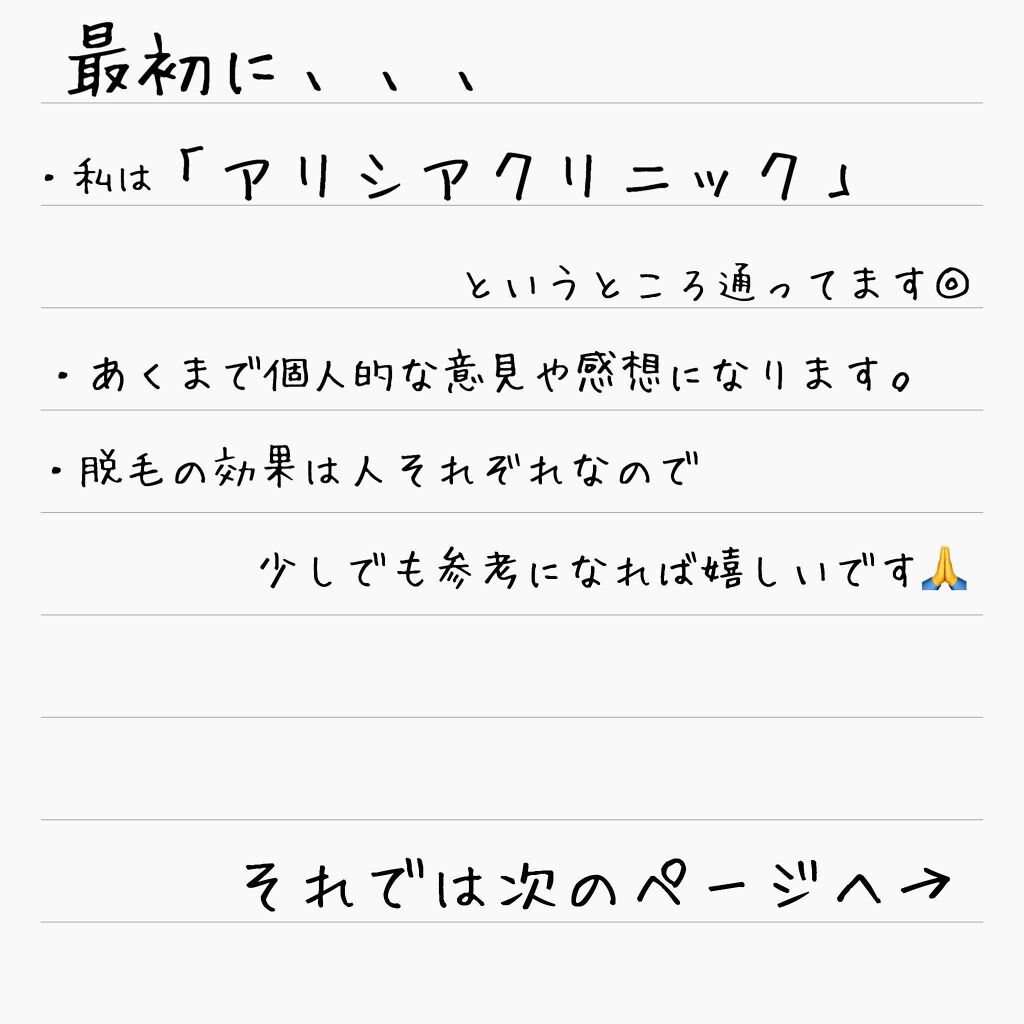 最初に、、、
・私は「アリシアクリニック」
というところ通ってます◎
・あくまで個人的な意見や感想になります。
・脱毛の効果は人それぞれなので
少しでも参考になれば嬉しいです🙏
それでは次のページへ→